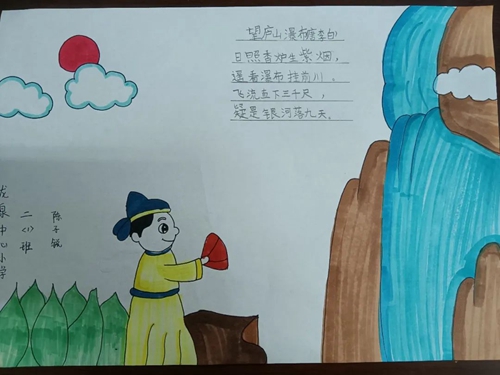 望庐山瀑布唐李白
日照香炉生紫烟，
遥看瀑布挂前川。
飞流直下三千尺，
疑是银河落九天。
陈子
二〈1〉班
泉中心小学